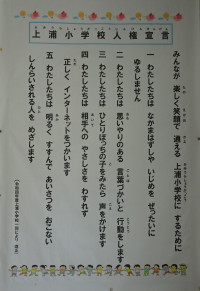 上浦小学校人権宣言
みんなが 楽しく笑顔で 通える 上浦小学校に するために
一 わたしたちは なかまはずしや いじめを ぜったいに
ゆるしません
二 わたしたちは 思いやりのある 言葉づかいと 行動をします
三 わたしたちは ひとりぼっちの子をみたら 声をかけます
四 わたしたちは 相手への やさしさを わすれず
正しく インターネットをつかいます
五 わたしたちは 明るく すすんで あいさつを おこない
しんらいされる人を めざします